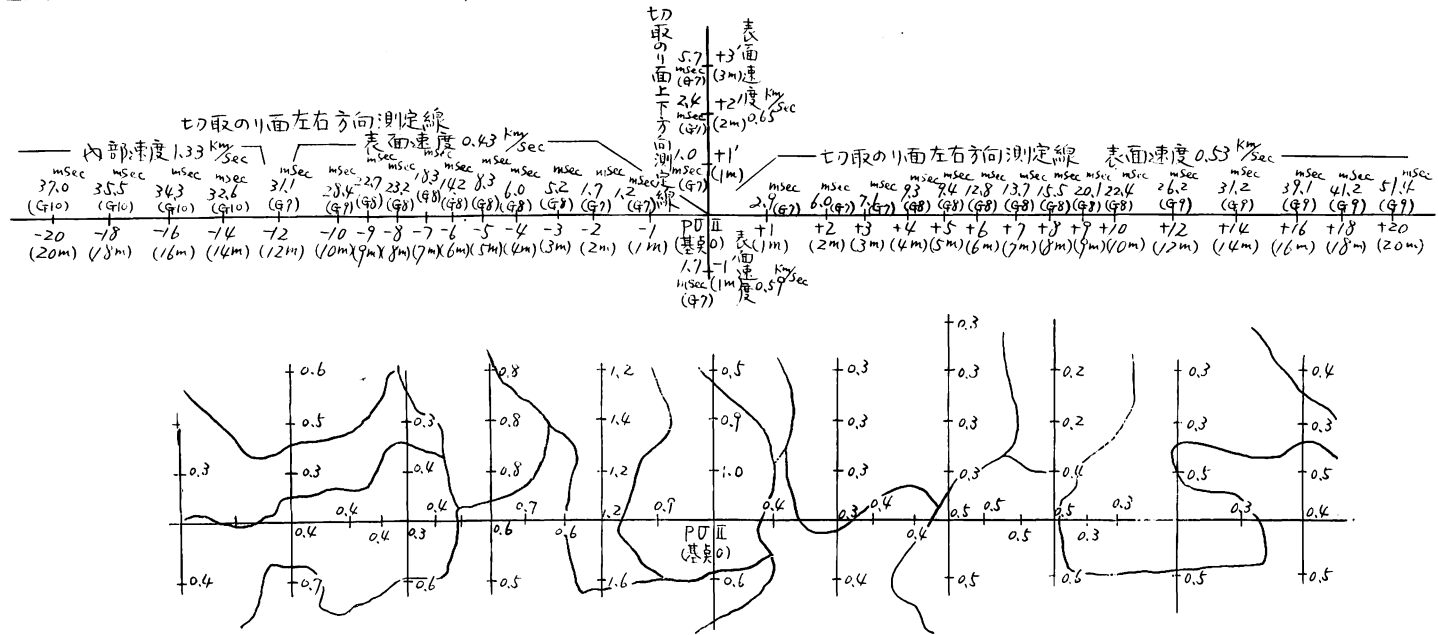 切取のり面上下方向測定線
表面速度 0.65 km/sec
5.7 msec (G7) +3 (3m)
2.4 msec (G7) +2 (2m)
1.0 msec (G7) +1 (1m)
切取のり面左右方向測定線
内部速度 1.33 km/sec
表面速度 0.43 km/sec
切取のり面左右方向測定線 表面速度 0.53 km/sec
msec msec msec msec msec msec msec msec msec msec msec msec msec msec msec
37.0 35.5 34.3 32.6 31.1 28.4 22.7 23.2 18.3 14.2 8.3 6.0 5.2 1.7 1.2
(G10) (G10) (G10) (G10) (G9) (G9) (G8) (G8) (G8) (G8) (G8) (G8) (G8) (G7) (G7)
-20 -18 -16 -14 -12 -10 -9 -8 -7 -6 -5 -4 -3 -2 -1
(20m) (18m) (16m) (14m) (12m) (10m) (9m) (8m) (7m) (6m) (5m) (4m) (3m) (2m) (1m)
PU II
(基点0)
msec msec msec msec msec msec msec msec msec msec msec msec msec msec msec
2.9 6.0 7.1 9.3 9.4 12.8 13.7 15.5 20.1 22.4 26.2 31.2 39.1 41.2 51.4
(G7) (G7) (G7) (G8) (G8) (G8) (G8) (G8) (G8) (G8) (G9) (G9) (G9) (G9) (G9)
+1 +2 +3 +4 +5 +6 +7 +8 +9 +10 +12 +14 +16 +18 +20
(1m) (2m) (3m) (4m) (5m) (6m) (7m) (8m) (9m) (10m) (12m) (14m) (16m) (18m) (20m)
1.7 msec (G7) -1 (1m)
表面速度 0.59 km/sec
0.3
0.6 0.8 1.2 0.5 0.3 0.3 0.2 0.3 0.4
0.5 0.3 0.8 1.4 0.9 0.3 0.3 0.2 0.3 0.3
0.3 0.3 0.4 0.8 1.2 1.0 0.3 0.3 0.4 0.5 0.5
0.4 0.4 0.7 1.2 0.9 0.4 0.3 0.4 0.5 0.5 0.5 0.3 0.3 0.4
0.4 0.4 0.3 0.6 0.6 0.4 0.4 0.5 0.3
PU II
(基点0)
0.4 0.7 0.6 0.5 1.6 0.6 0.4 0.5 0.6 0.5 0.5